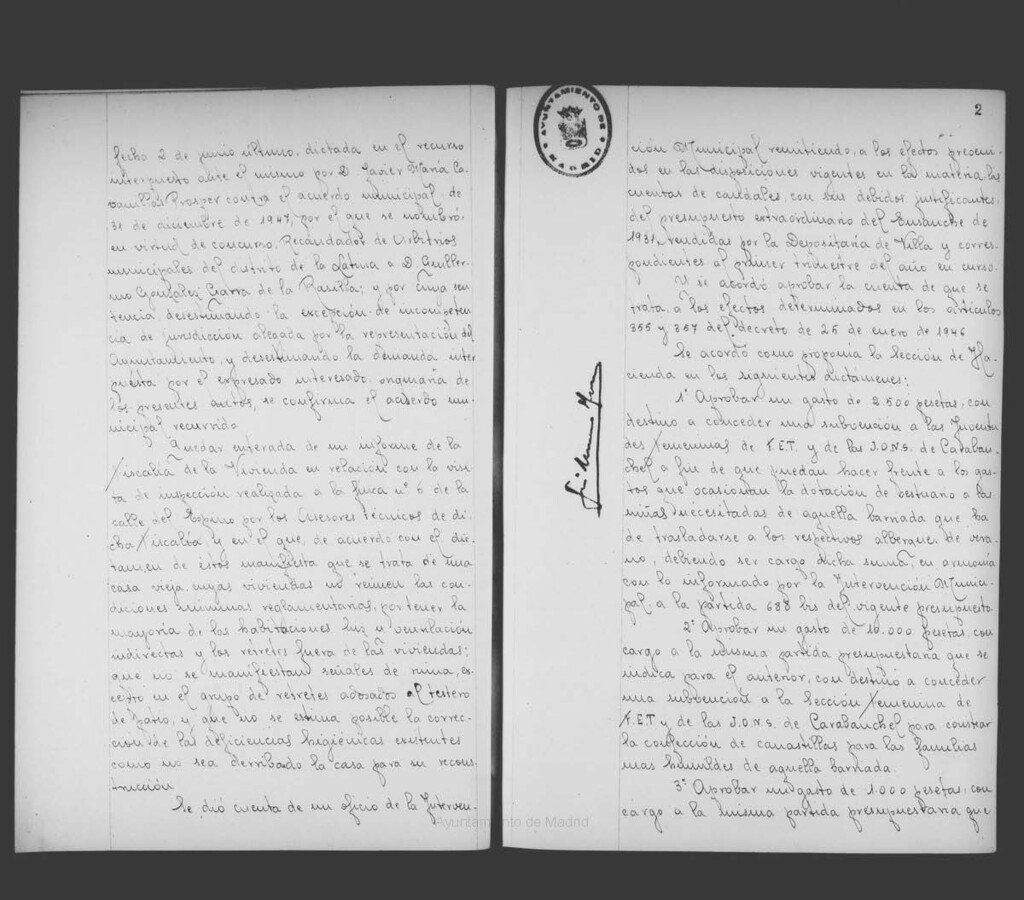 fecha 2 de junio último, dictada en el recurso
interpuesto ante el mismo por D. Javier María Ca-
vanillas Prosper contra el acuerdo municipal de
31 de diciembre de 1947, por el que se nombró,
en virtud de concurso, Recaudador de Arbitrios
municipales del distrito de la Latina a D. Guiller-
mo González Garra de la Rasilla; y por cuya sen-
tencia, desestimando la excepción de incompeten-
cia de jurisdicción alegada por la representación del
Ayuntamiento, y desestimando la demanda inter
puesta por el expresado interesado, originaria de
los presentes autos, se confirma el acuerdo mu-
nicipal recurrido
Quedar enterada de un informe de la
Fiscalía de la Vivienda en relación con la visi-
ta de inspección realizada a la finca nº 6 de la
calle del Espino por los Asesores técnicos de di-
cha Fiscalía, y en el que, de acuerdo con el dic-
tamen de éstos manifiesta que se trata de una
casa vieja, cuyas viviendas no reúnen las con-
diciones mínimas reglamentarias, por tener la
mayoría de las habitaciones luz y ventilación
indirectas y los retretes fuera de las viviendas;
que no se manifiestan señales de ruina, ex-
cepto en el grupo de retretes adosados al testero
de patio, y que no se estima posible la correc-
ción de las deficiencias higiénicas existentes
como no sea derribado la casa para su recons-
trucción
Se dió cuenta de un oficio de la Interven-
AYUNTAMIENTO DE MADRID
2
ción Municipal remitiendo, a los efectos preveni-
dos en las disposiciones vigentes en la materia las
cuentas de caudales, con sus debidos justificantes
del presupuesto extraordinario del Ensanche de
1931, rendidas por la Depositaría de Villa y corres-
pondientes al primer trimestre del año en curso.
Y se acordó aprobar la cuenta de que se
trata, a los efectos determinados en los artículos
355 y 357 del decreto de 25 de enero de 1946
Se acordó como proponía la Sección de Ha-
cienda en los siguientes dictámenes:
1º Aprobar un gasto de 2.500 pesetas, con
destino a conceder una subvención a las Juventu
des Femeninas de F.E.T. y de las J.O.N.S. de Caraban-
chel a fin de que puedan hacer frente a los gas-
tos que ocasionan la dotación de vestuario a las
niñas necesitadas de aquella barriada que ha
de trasladarse a los respectivos albergues de vera-
no, debiendo ser cargo dicha suma, en armonía
con lo informado por la Intervención Munici-
pal a la partida 688 bis del vigente presupuesto.
2º Aprobar un gasto de 10.000 pesetas, con
cargo a la misma partida presupuestaria que se
indica para el anterior, con destino a conceder
una subvención a la Sección Femenina de
F.E.T. y de las J.O.N.S. de Carabanchel para costear
la confección de canastillas para las familias
mas humildes de aquella barriada.
3º Aprobar un gasto de 1.000 pesetas, con
cargo a la misma partida presupuestaria que
Ayuntamiento de Madrid